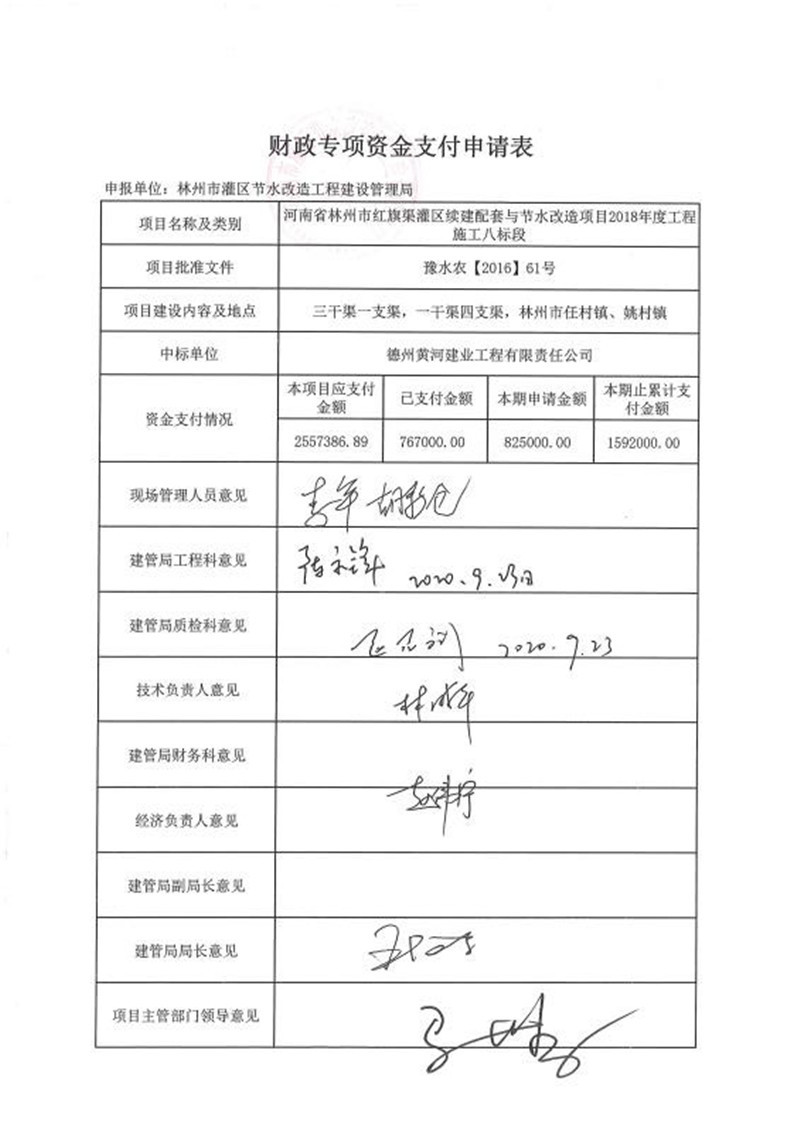 财政专项资金支付申请表
申报单位：林州市灌区节水改造工程建设管理局
项目名称及类别
河南省林州市红旗渠灌区续建配套与节水改造项目2018年度工程
施工八标段
项目批准文件
豫水农【2016】61号
项目建设内容及地点
三干渠一支渠，一干渠四支渠，林州市任村镇、姚村镇
中标单位
德州黄河建业工程有限责任公司
资金支付情况
本项目应支付
金额
已支付金额
本期申请金额
本期止累计支
付金额
2557386.89
767000.00
825000.00
1592000.00
现场管理人员意见
建管局工程科意见
2020.9.23日
建管局质检科意见
2020.9.23
技术负责人意见
建管局财务科意见
经济负责人意见
建管局副局长意见
建管局局长意见
项目主管部门领导意见